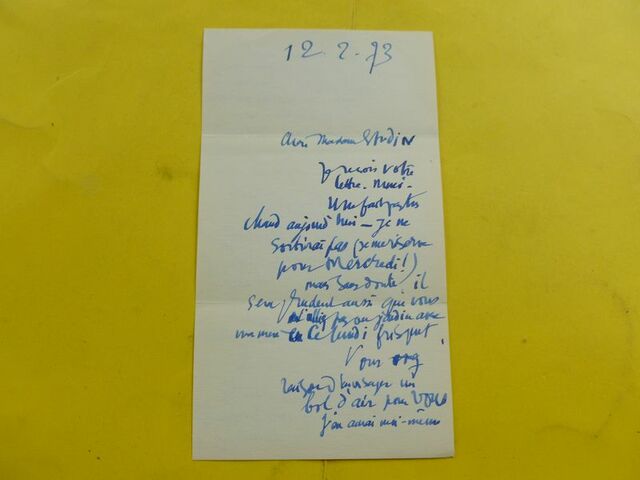 12.2.73
Chère Madame
Je reçois votre
lettre. Merci.
Il ne fait pas très
chaud aujourd'hui — je ne
sortirai pas (je me réserve
pour Mercredi!)
mais sans doute il
sera prudent aussi que vous
n'alliez pas au jardin avec
ce lundi frisquet.
Vous
raison d'envisager un
bol d'air pour vous
J'en aurai moi-même